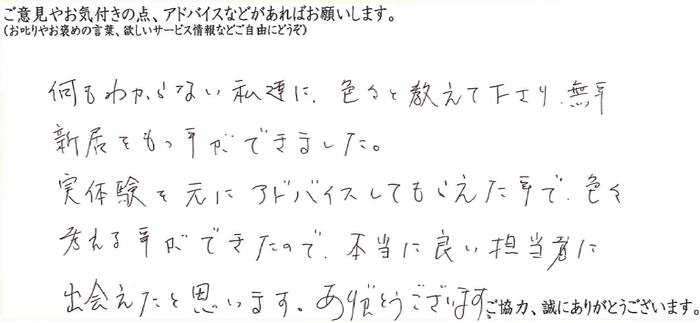 ご意見やお気付きの点、アドバイスなどがあればお願いします。
(お叱りやお褒めの言葉、欲しいサービス情報などご自由にどうぞ)
何もわからない私達に、色々と教えて下さり、無事
新居をもつ事ができました。
実体験を元にアドバイスしてもらえた事で、色々
考える事ができたので、本当に良い担当者に
出会えたと思います。ありがとうございます。
ご協力、誠にありがとうございます。